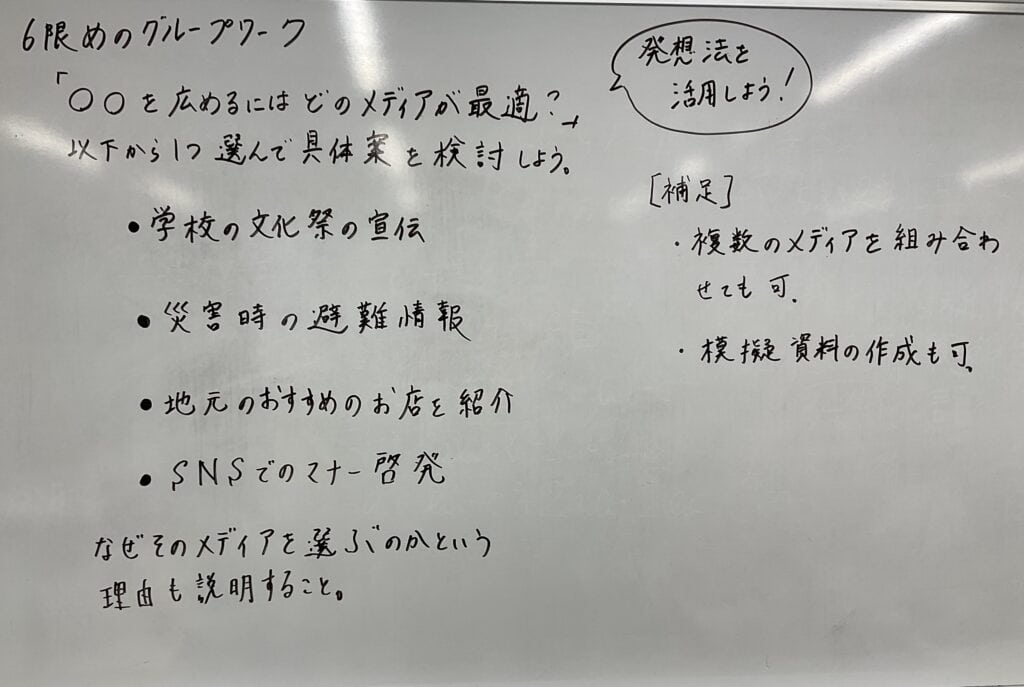 6限めのグループワーク
「〇〇を広めるにはどのメディアが最適?」
以下から1つ選んで具体案を検討しよう。
• 学校の文化祭の宣伝
• 災害時の避難情報
• 地元のおすすめのお店を紹介
• SNSでのマナー啓発
なぜそのメディアを選ぶのかという
理由も説明すること。
発想法を
活用しよう!
[補足]
・複数のメディアを組み合わ
せても可.
・模擬資料の作成も可.